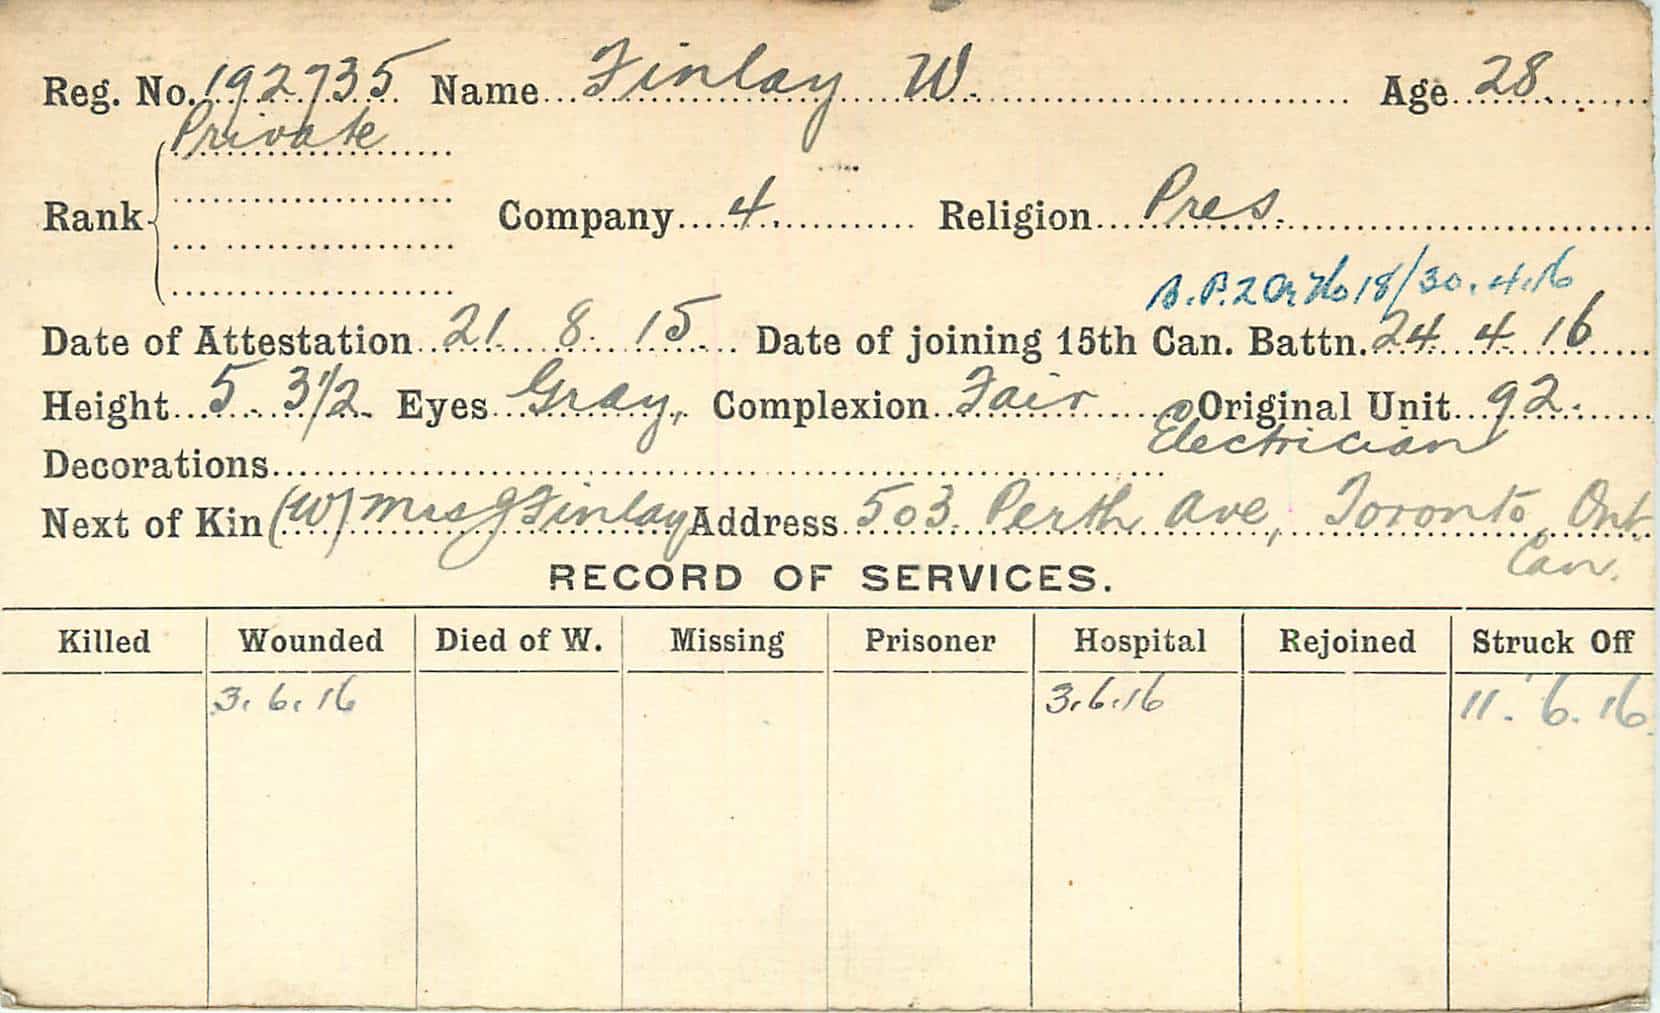 Reg. No. 192735 Name Finlay W. Age 28
Private
Rank Company 4. Religion Pres.
18/30.4.16
Date of Attestation 21. 8. 15. Date of joining 15th Can. Battn. 24 4 16
Height 5 3½ Eyes Gray, Complexion Fair Original Unit 92.
Electrician
Decorations
Next of Kin (W) Mrs J Finlay Address 503 Perth Ave, Toronto, Ont
Can.
RECORD OF SERVICES.
Killed Wounded Died of W. Missing Prisoner Hospital Rejoined Struck Off
3.6.16 3.6.16 11.6.16